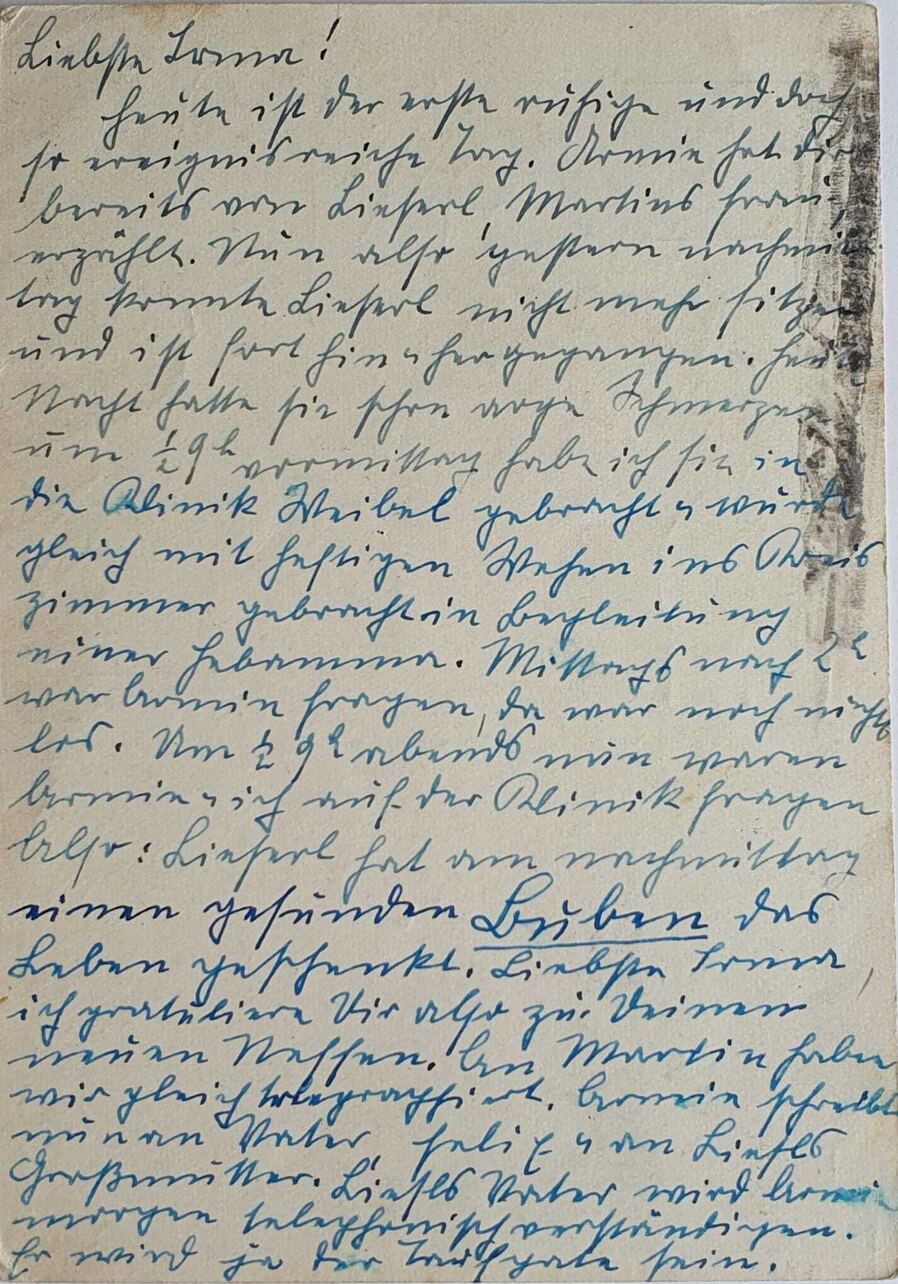 Liebste Irma!
Heute ist der erste ruhige und doch
so ereignisreiche Tag. Armin hat Dir
bereits von Lieserl, Martins Frau,
erzählt. Nun also gestern nachmit
tag konnte Lieserl nicht mehr sitzen
und ist fort hin u her gegangen. Heute
Nacht hatte sie schon arge Schmerzen
um ½ 9h vormittag habe ich sie in
die Klinik Weibel gebracht u wurde
gleich mit heftigen Wehen ins Kreis
zimmer gebracht in Begleitung
einer Hebamme. Mittags nach 2h
war Armin fragen, da war noch nichts
los. Um ½ 9h abends nun waren
Armin u ich auf der Klinik fragen
Also: Lieserl hat am nachmittag
einen gesunden Buben das
Leben geschenkt. Liebste Irma
ich gratuliere Dir also zu Deinem
neuen Neffen. An Martin haben
wir gleich telegraphiert. Armin schreibt
nun an Vater Felix u an Liesls
Großmutter. Liesls Vater wird Armin
morgen telephonisch verständigen.
Er wird ja der Taufpate sein.